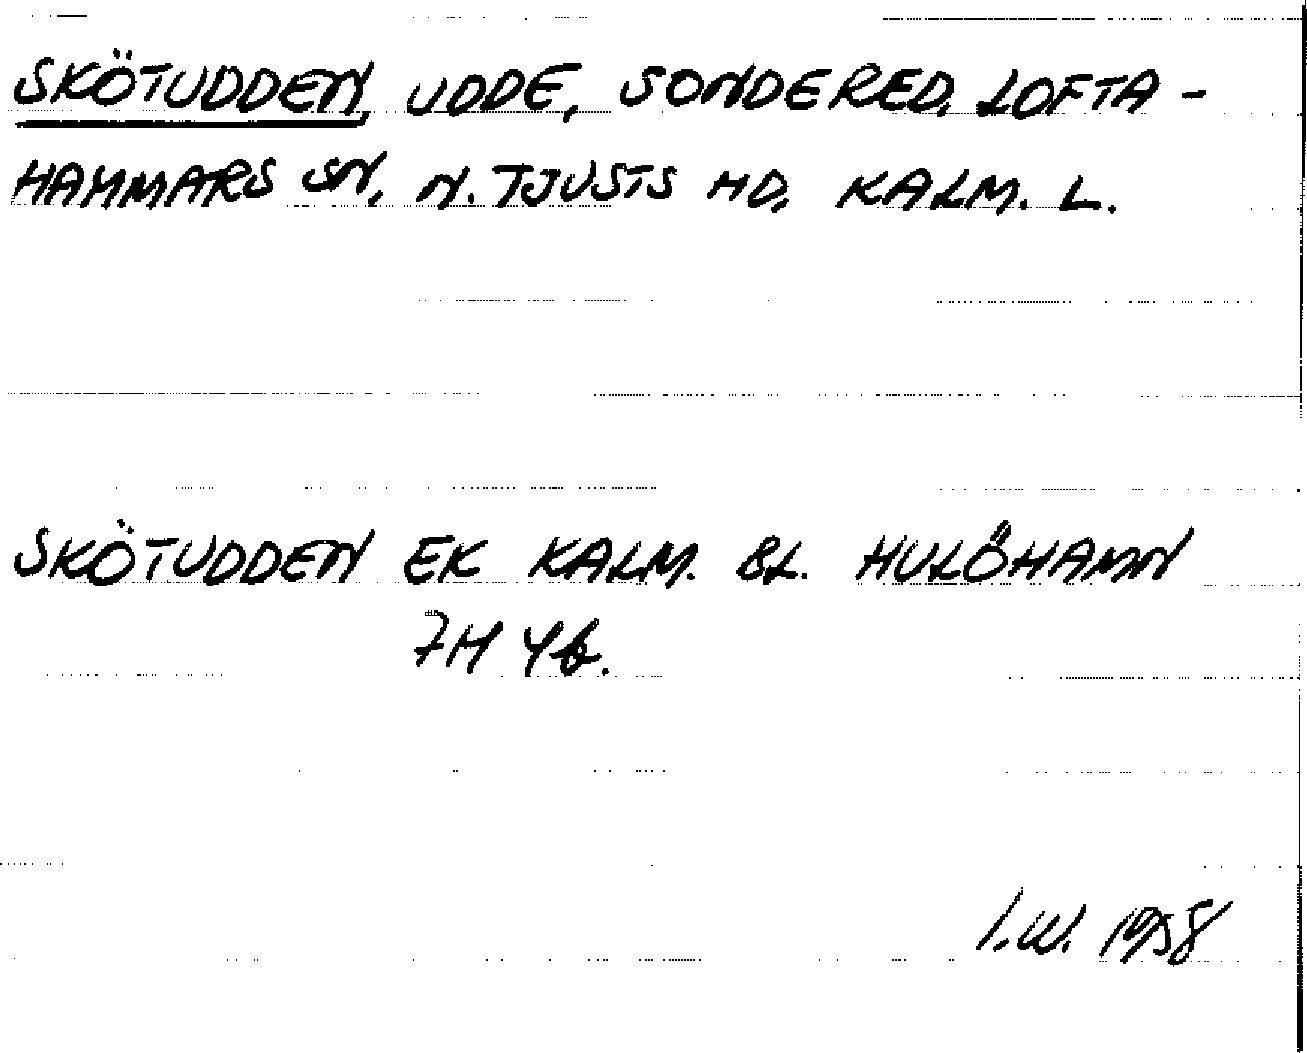 SKÖTUDDEN, UDDE, SONDERED, LOFTA-
HAMMARS SN, N. TJUSTS HD, KALM. L.
SKÖTUDDEN EK KALM. BL. HULÖHAMN
7H 4b.
I.W. 1958